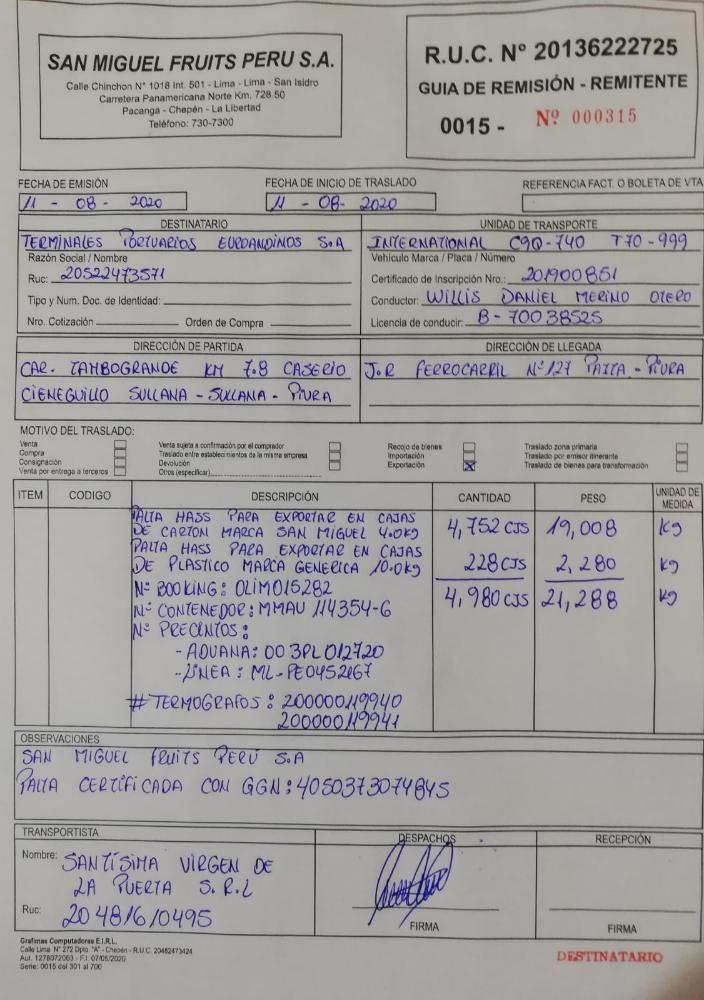 SAN MIGUEL FRUITS PERU S.A.
Calle Chinchon N° 1018 Int. 501 - Lima - Lima - San Isidro
Carretera Panamericana Norte Km. 728.50
Pacanga - Chepén - La Libertad
Teléfono: 730-7300
R.U.C. N° 20136222725
GUIA DE REMISIÓN - REMITENTE
0015 - Nº 000315
FECHA DE EMISIÓN
11 - 08 - 2020
FECHA DE INICIO DE TRASLADO
11 - 08 - 2020
REFERENCIA FACT. O BOLETA DE VTA
DESTINATARIO
TERMINALES PORTUARIOS EUROANDINOS S.A
Razón Social / Nombre
Ruc: 20522473571
Tipo y Num. Doc. de Identidad:
Nro. Cotización Orden de Compra
UNIDAD DE TRANSPORTE
INTERNATIONAL C9Q-740 T70-999
Vehículo Marca / Placa / Número
Certificado de Inscripción Nro.: 201900851
Conductor: WILLIS DANIEL MERINO OTERO
Licencia de conducir: B-70038525
DIRECCIÓN DE PARTIDA
CAR. TAMBOGRANDE KM 7.8 CASERIO
CIENEGUILLO SULLANA - SULLANA - PIURA
DIRECCIÓN DE LLEGADA
J.R FERROCARRIL N°127 PAITA - PIURA
MOTIVO DEL TRASLADO:
Venta
Compra
Consignación
Venta por entrega a terceros
Venta sujeta a confirmación por el comprador
Traslado entre establecimientos de la misma empresa
Devolución
Otros (especificar)
Recojo de bienes
Importación
Exportación
Traslado zona primaria
Traslado por emisor itinerante
Traslado de bienes para transformación
ITEM CODIGO DESCRIPCIÓN CANTIDAD PESO UNIDAD DE MEDIDA
PALTA HASS PARA EXPORTAR EN CAJAS
DE CARTON MARCA SAN MIGUEL 4.0kg 4,752 CJS 19,008 kg
PALTA HASS PARA EXPORTAR EN CAJAS
DE PLASTICO MARCA GENERICA 10.0kg 228 CJS 2,280 kg
N° BOOKING: OLIMO15282 4,980 CJS 21,288 kg
N° CONTENEDOR: MMAU 114354-6
N° PRECINTOS:
- ADUANA: 003PL012720
- LINEA: ML-PE0452167
# TERMOGRAFOS: 200000119940
200000119941
OBSERVACIONES
SAN MIGUEL FRUITS PERÚ S.A
PALTA CERTIFICADA CON GGN: 4050373074845
TRANSPORTISTA
Nombre: SANTÍSIMA VIRGEN DE
LA PUERTA S.R.L
Ruc: 20481610495
DESPACHOS
FIRMA
RECEPCIÓN
FIRMA
Grafimas Computadores E.I.R.L.
Calle Lima N° 272 Dpto. "A" - Chepén - R.U.C. 20482473424
Aut. 1278072063 - F.I. 07/05/2020
Serie: 0015 del 301 al 700
DESTINATARIO